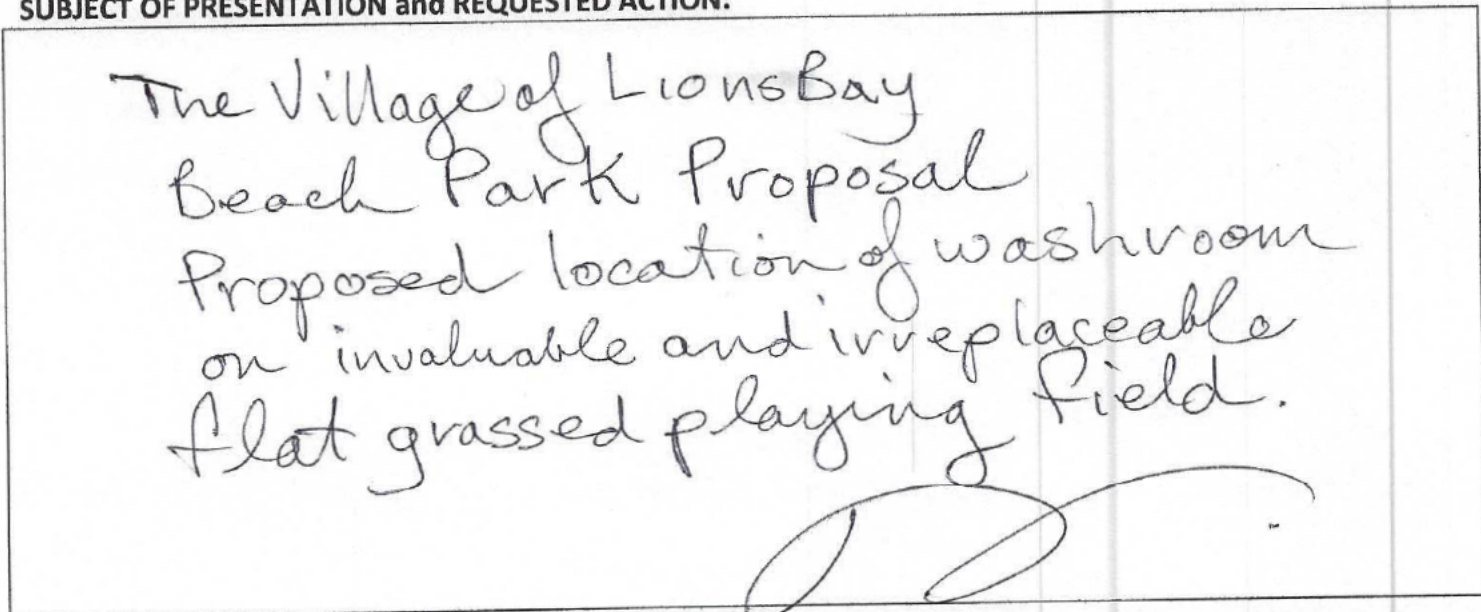 SUBJECT OF PRESENTATION and REQUESTED ACTION:
The Village of Lions Bay
Beach Park Proposal
Proposed location of washroom
on invaluable and irreplaceable
flat grassed playing field.